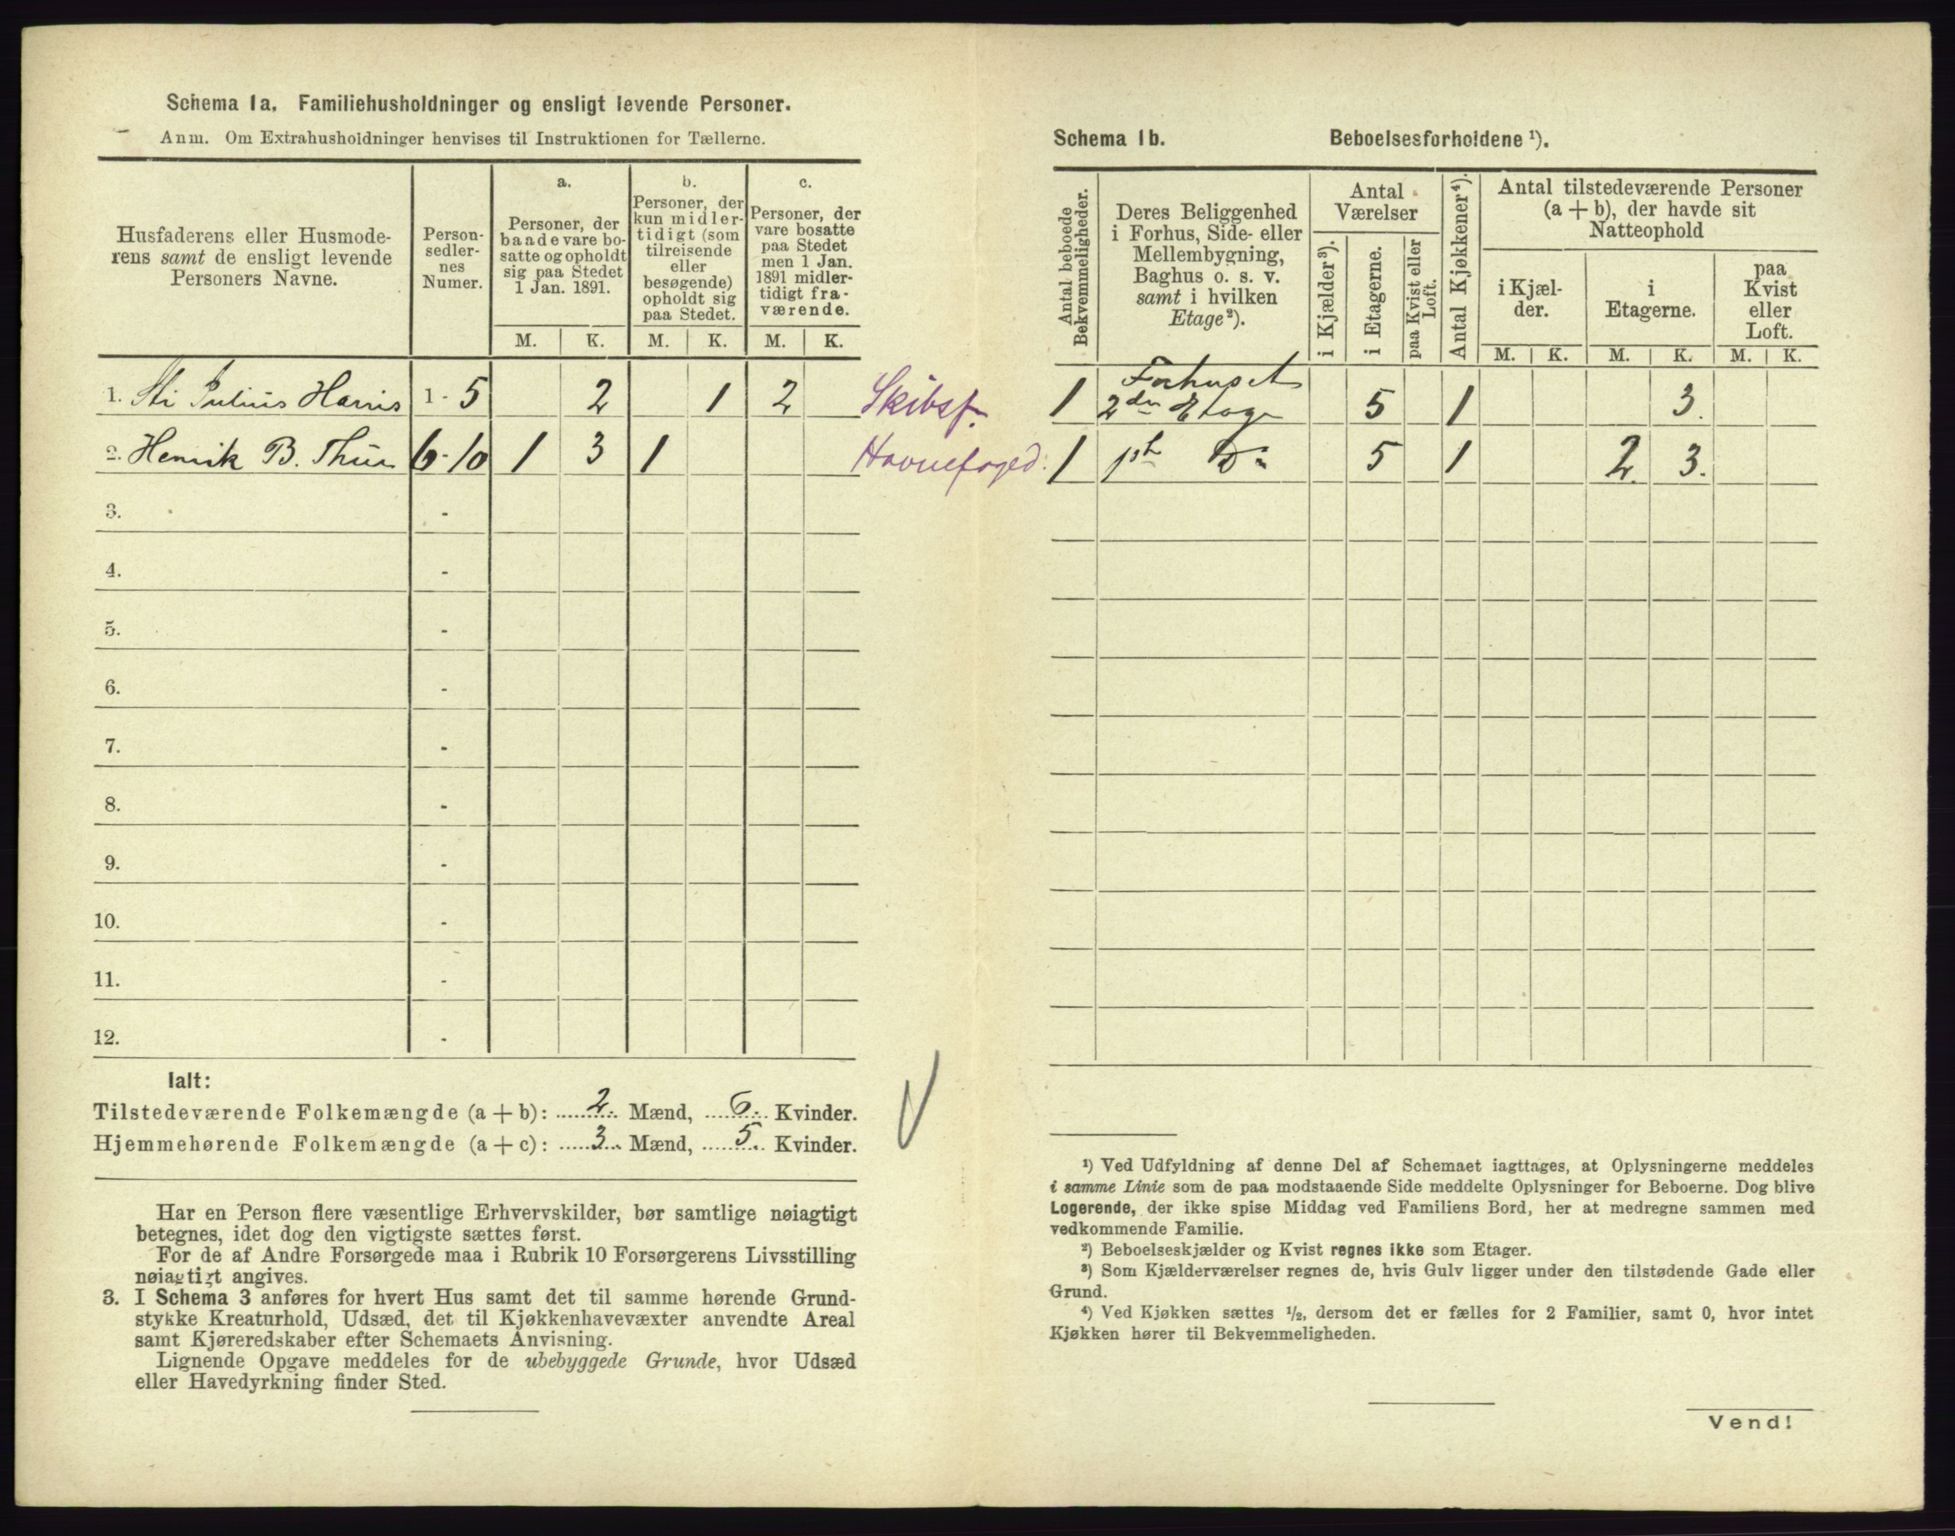 Schema 1a. Familiehusholdninger og ensligt levende Personer.
Anm. Om Extrahusholdninger henvises til Instruktionen for Tællerne.
Husfaderens eller Husmode-
rens samt de ensligt levende
Personers Navne.
Person-
sedler-
nes
Numer.
a.
Personer, der
baade vare bo-
satte og opholdt
sig paa Stedet
1 Jan. 1891.
b.
Personer, der
kun midler-
tidigt (som
tilreisende
eller
besøgende)
opholdt sig
paa Stedet.
c.
Personer, der
vare bosatte
paa Stedet
men 1 Jan.
1891 midler-
tidigt fra-
værende.
M. K. M. K. M. K.
1. Julius Harris 1 - 5 2 1 2 Skibsf.
2. Henrik B. Thue 6 - 10 1 3 1 Havnefoged.
3. -
4. -
5. -
6. -
7. -
8. -
9. -
10. -
11. -
12. -
Ialt:
Tilstedeværende Folkemængde (a + b): 2. Mænd, 6. Kvinder.
Hjemmehørende Folkemængde (a + c): 3. Mænd, 5. Kvinder.
Har en Person flere væsentlige Erhvervskilder, bør samtlige nøiagtigt
betegnes, idet dog den vigtigste sættes først.
For de af Andre Forsørgede maa i Rubrik 10 Forsørgerens Livsstilling
nøiagtigt angives.
3. I Schema 3 anføres for hvert Hus samt det til samme hørende Grund-
stykke Kreaturhold, Udsæd, det til Kjøkkenhavevæxter anvendte Areal
samt Kjøreredskaber efter Schemaets Anvisning.
Lignende Opgave meddeles for de ubebyggede Grunde, hvor Udsæd
eller Havedyrkning finder Sted.
Schema 1b. Beboelsesforholdene ¹).
Antal beboede
Bekvemmeligheder.
Deres Beliggenhed
i Forhus, Side- eller
Mellembygning,
Baghus o. s. v.
samt i hvilken
Etage²).
Antal
Værelser
i Kjælder³).
i Etagerne.
paa Kvist eller
Loft.
Antal Kjøkkener⁴).
Antal tilstedeværende Personer
(a + b), der havde sit
Natteophold
i Kjæl-
der.
i
Etagerne.
paa
Kvist
eller
Loft.
M. K. M. K. M. K.
1 Forhuset
2den Etage 5 1 3.
1 1ste Do 5 1 2. 3.
¹) Ved Udfyldning af denne Del af Schemaet iagttages, at Oplysningerne meddeles
i samme Linie som de paa modstaaende Side meddelte Oplysninger for Beboerne. Dog blive
Logerende, der ikke spise Middag ved Familiens Bord, her at medregne sammen med
vedkommende Familie.
²) Beboelseskjælder og Kvist regnes ikke som Etager.
³) Som Kjælderværelser regnes de, hvis Gulv ligger under den tilstødende Gade eller
Grund.
⁴) Ved Kjøkken sættes ½, dersom det er fælles for 2 Familier, samt 0, hvor intet
Kjøkken hører til Bekvemmeligheden.
Vend!